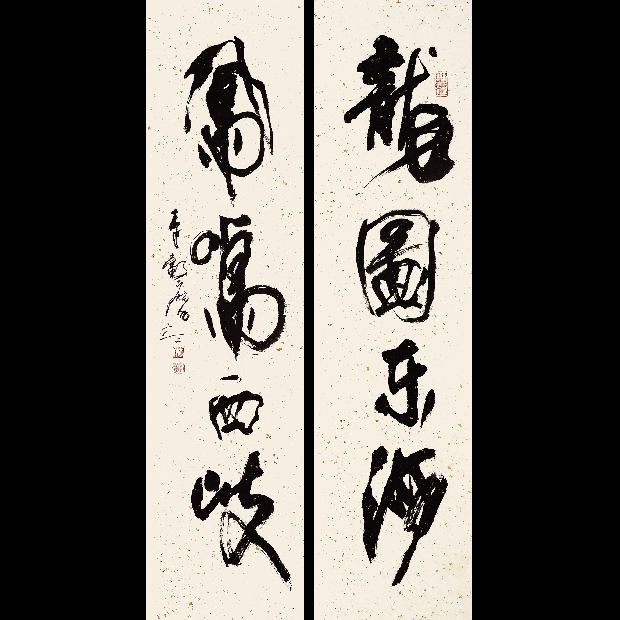 龍圖東海
鳳鳴西岐